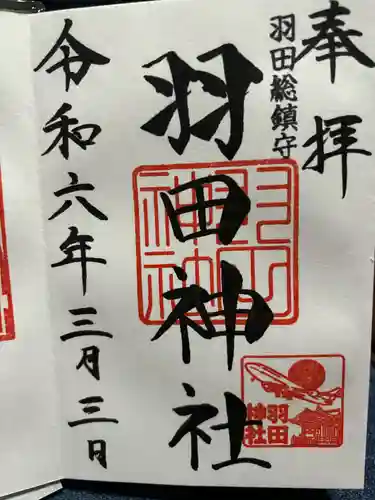 奉拝
羽田総鎮守
羽田神社
羽田神社
羽田
神社
令和六年三月三日